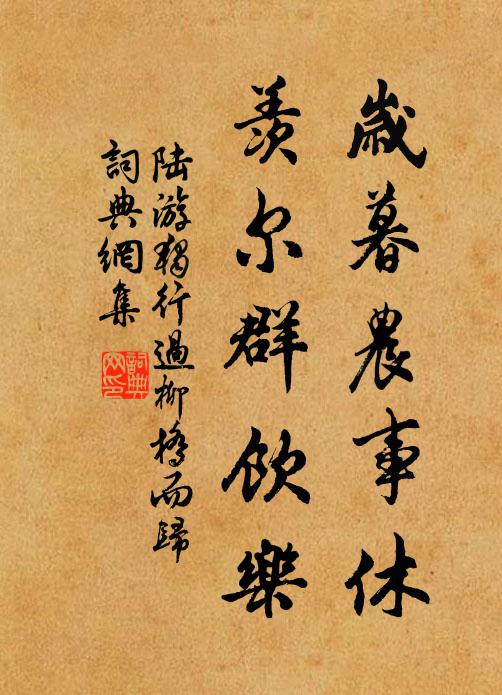 歲暮農事休
羨尔群飲樂
陆游獨行過柳橋而歸
詞典網集
詞典网印